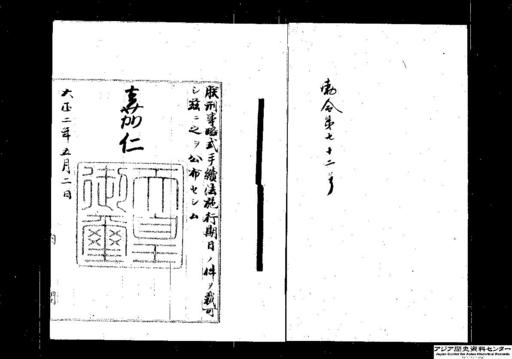 勅令第七十二号
朕刑事略式手続法施行期日ノ件ヲ裁可
シ茲ニ之ヲ公布セシム
嘉仁
天皇御璽
大正二年五月二日
内閣
アジア歴史資料センター
Japan Center for Asian Historical Records